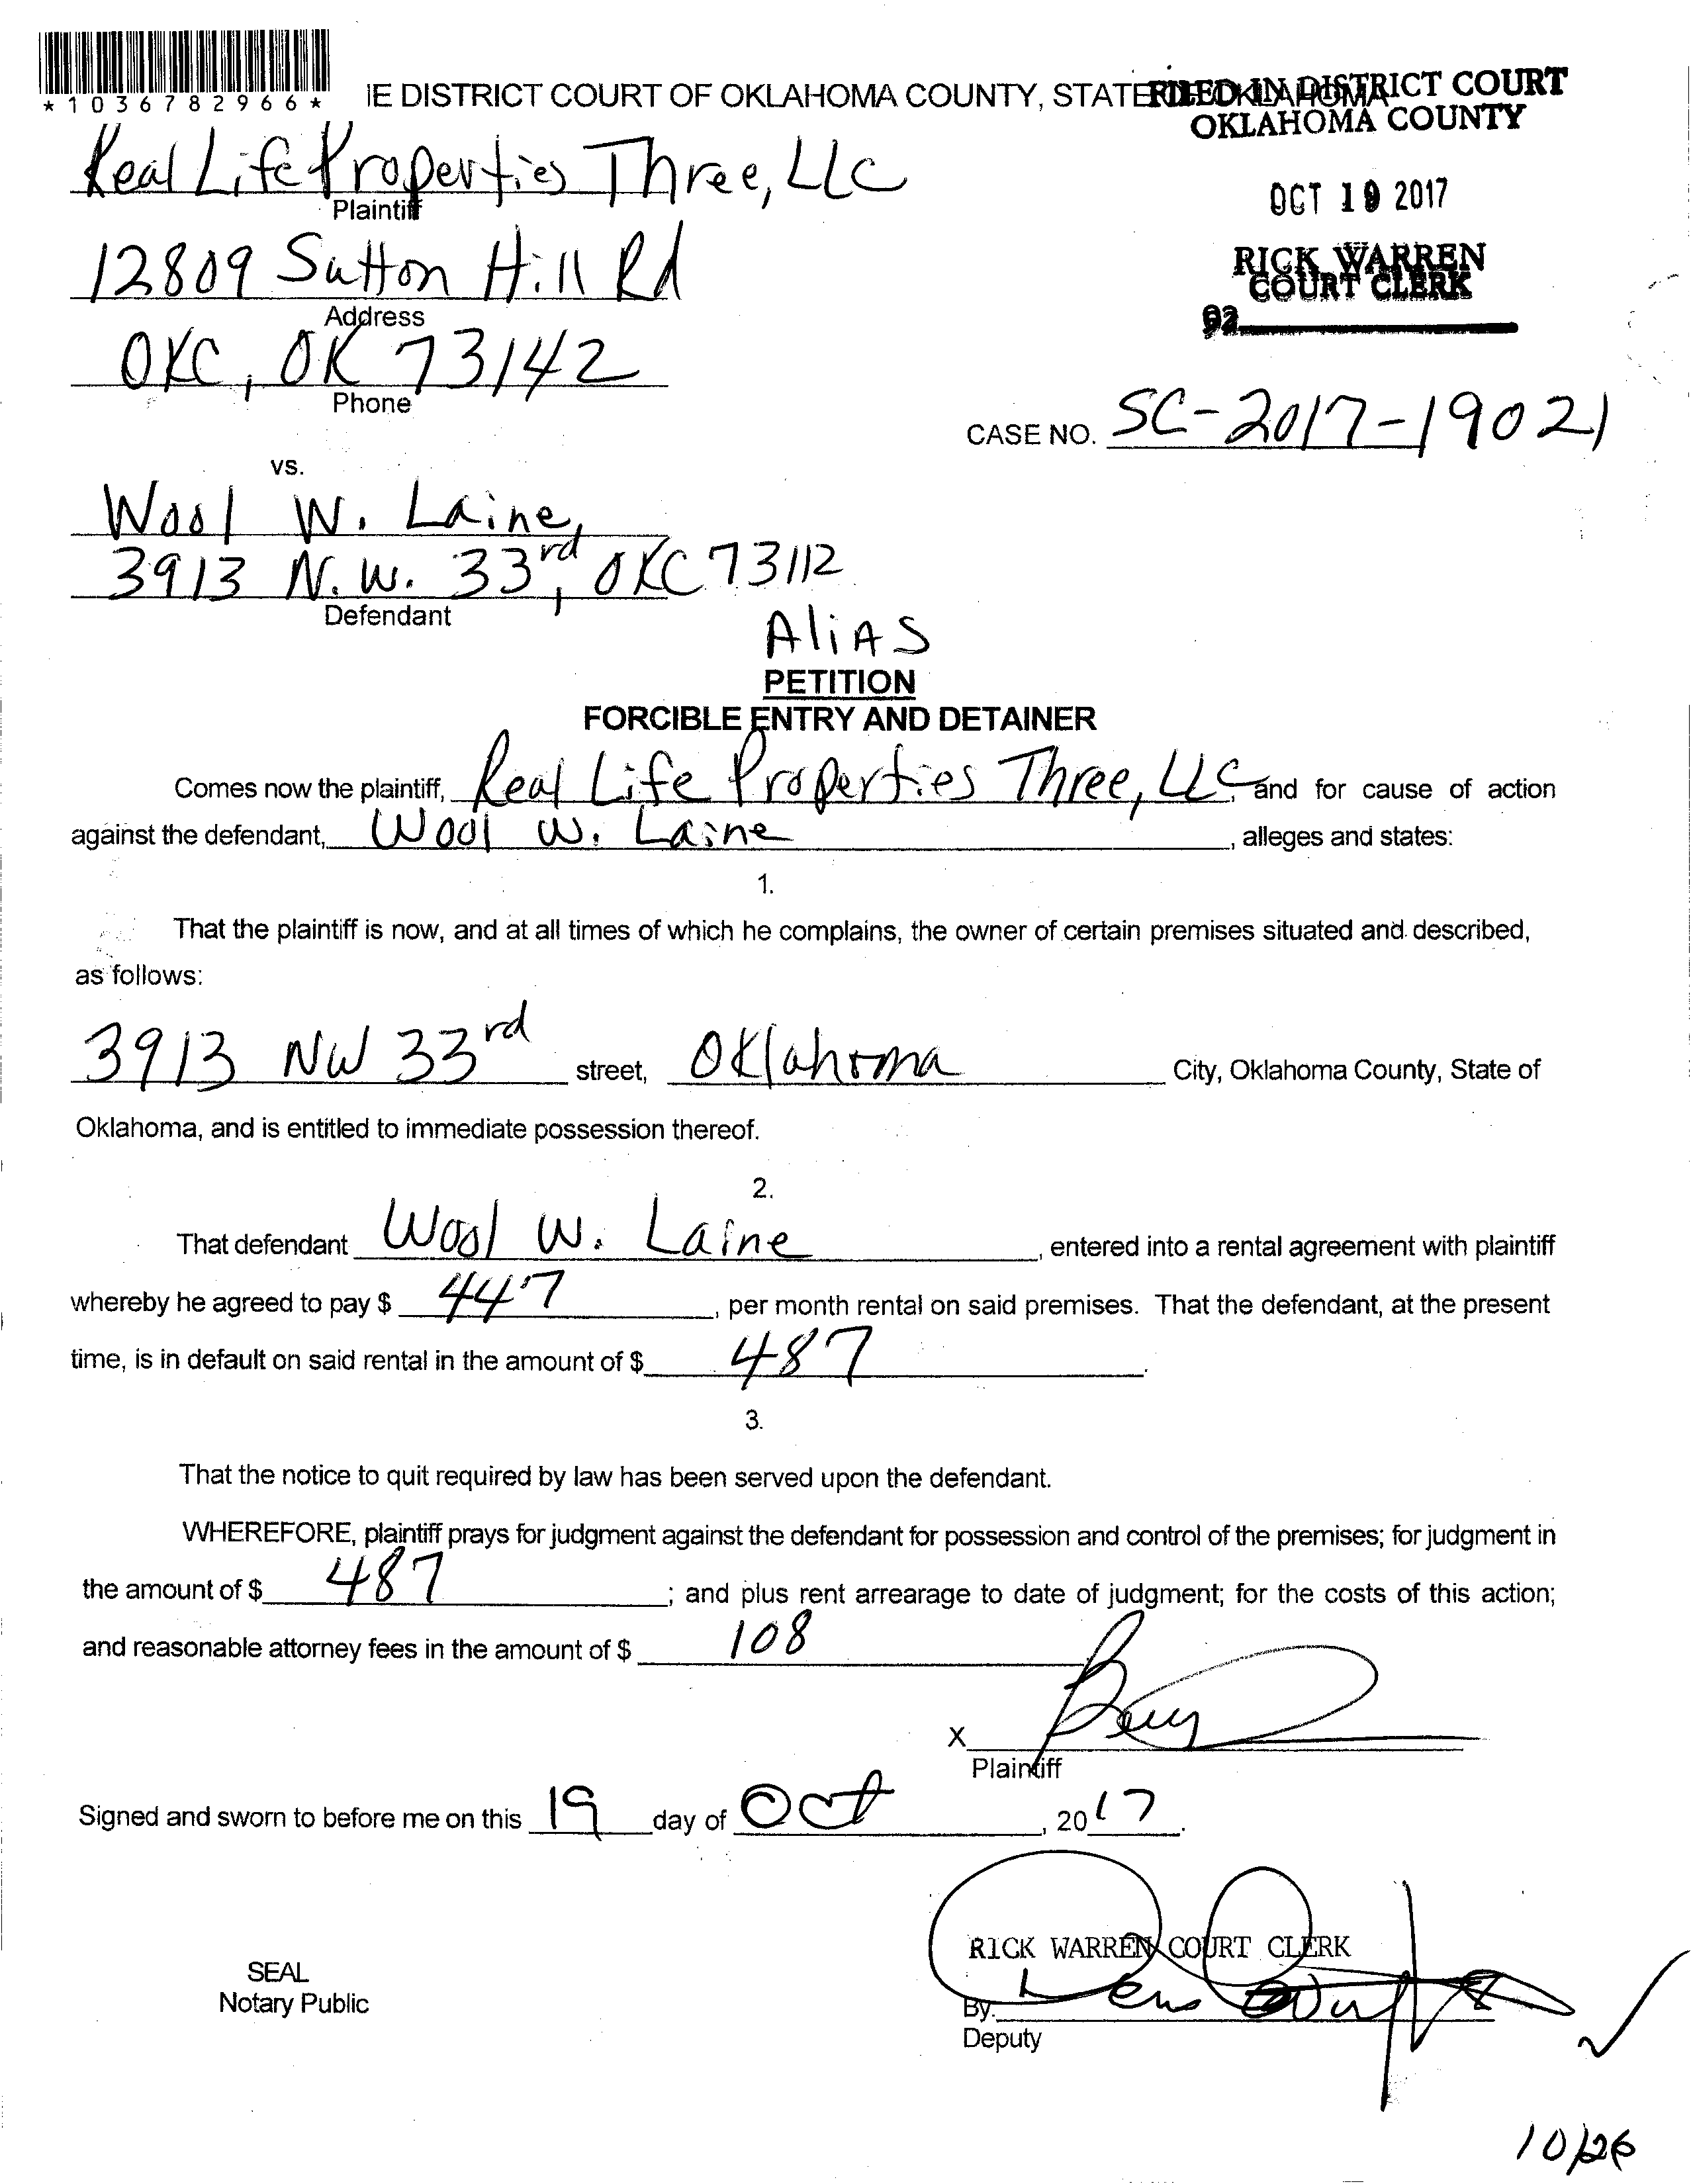 *1036782966*
IE DISTRICT COURT OF OKLAHOMA COUNTY, STATE OF OKLAHOMA
FILED IN DISTRICT COURT
OKLAHOMA COUNTY
OCT 19 2017
RICK WARREN
COURT CLERK
92
Real Life Properties Three, LLC
Plaintiff
12809 Sutton Hill Rd
Address
OKC, OK 73142
Phone
CASE NO. SC-2017-19021
vs.
Wool W. Laine,
3913 N.W. 33rd, OKC 73112
Defendant
AliAS
PETITION
FORCIBLE ENTRY AND DETAINER
Comes now the plaintiff, Real Life Properties Three, LLC, and for cause of action
against the defendant, Wool W. Laine, alleges and states:
1.
That the plaintiff is now, and at all times of which he complains, the owner of certain premises situated and described,
as follows:
3913 NW 33rd street, Oklahoma City, Oklahoma County, State of
Oklahoma, and is entitled to immediate possession thereof.
2.
That defendant Wool W. Laine, entered into a rental agreement with plaintiff
whereby he agreed to pay $ 447, per month rental on said premises. That the defendant, at the present
time, is in default on said rental in the amount of $ 487.
3.
That the notice to quit required by law has been served upon the defendant.
WHEREFORE, plaintiff prays for judgment against the defendant for possession and control of the premises; for judgment in
the amount of $ 487; and plus rent arrearage to date of judgment; for the costs of this action;
and reasonable attorney fees in the amount of $ 108
X
Plaintiff
Signed and sworn to before me on this 19 day of Oct, 2017.
RICK WARREN COURT CLERK
SEAL
Notary Public
By:
Deputy
10/26